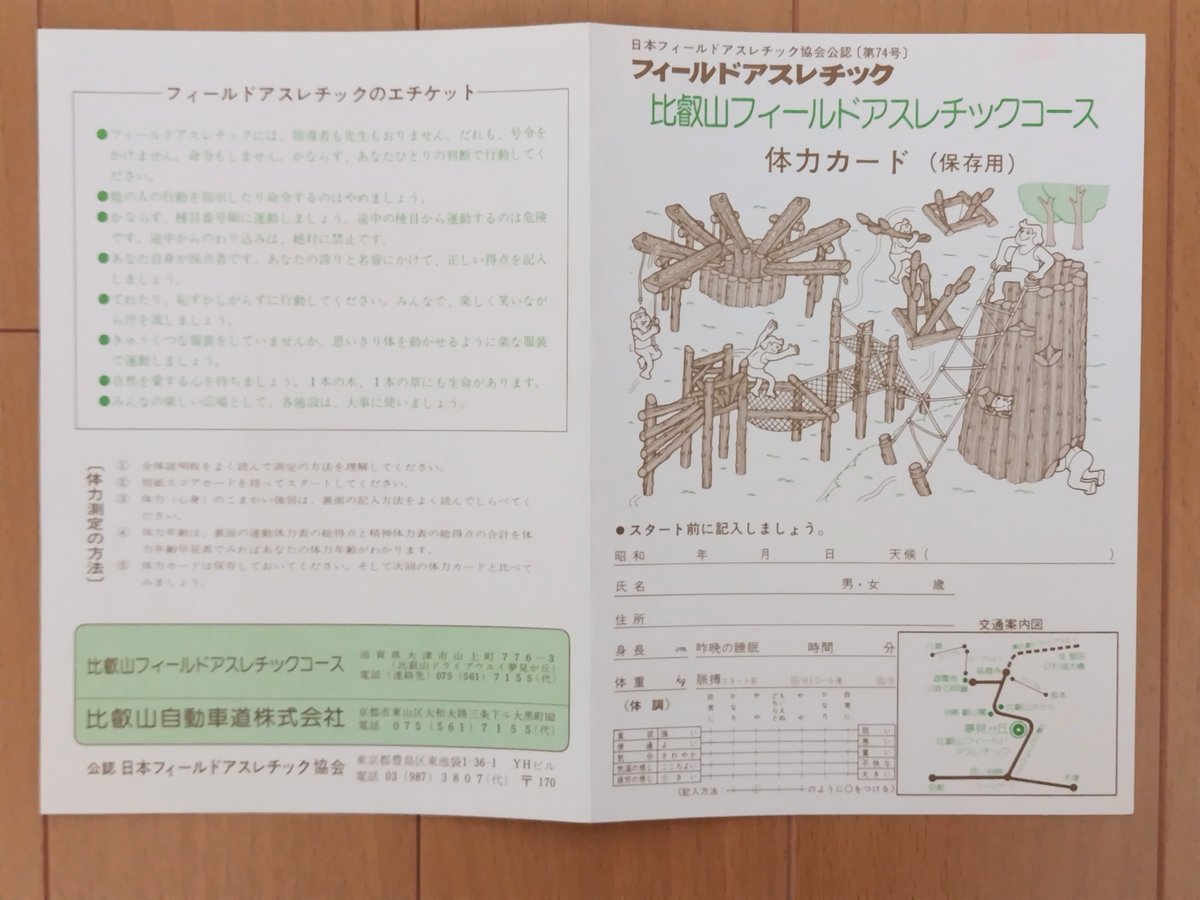 フィールドアスレチックのエチケット
●フィールドアスレチックには、指導者も先生もおりません。だれも、号令を
かけません。命令もしません。かならず、あなたひとりの判断で行動してく
ださい。
●他の人の行動を指示したり命令するのはやめましょう。
●かならず、種目番号順に運動しましょう。途中の種目から運動するのは危険
です。途中からのわり込みは、絶対に禁止です。
●あなた自身が採点者です。あなたの誇りと名誉にかけて、正しい得点を記入
しましょう。
●てれたり、恥ずかしがらずに行動してください。みんなで、楽しく笑いなが
ら汗を流しましょう。
●きゅうくつな服装をしていませんか。思いきり体を動かせるように楽な服装
で運動しましょう。
●自然を愛する心を持ちましょう。1本の木、1本の草にも生命があります。
●みんなの楽しい広場として、各施設は、大事に使いましょう。
〔体力測定の方法〕
① 全体説明板をよく読んで測定の方法を理解してください。
② 別紙スコアカードを持ってスタートしてください。
③ 体力（心身）のこまかい強弱は、裏面の記入方法をよく読んでしらべてく
ださい。
④ 体力年齢は、裏面の運動体力表の総得点と精神体力表の総得点の合計を体
力年齢早見表でみればあなたの体力年齢がわかります。
⑤ 体力カードは保存しておいてください。そして次回の体力カードと比べて
みましょう。
比叡山フィールドアスレチックコース
滋賀県大津市山上町776-3
（比叡山ドライブウエイ夢見が丘）
電話（連絡先）075(561)7155(代)
比叡山自動車道株式会社
京都市東山区大和大路三条下ル大黒町
電話 075(561)7155(代)
公認 日本フィールドアスレチック協会
東京都豊島区東池袋1-36-1 YHビル
電話 03(987)3807(代) 〒170
日本フィールドアスレチック協会公認〔第74号〕
フィールドアスレチック
比叡山フィールドアスレチックコース
体力カード（保存用）
●スタート前に記入しましょう。
昭和 年 月 日 天候（ ）
氏名 男・女 歳
住所
身長 cm 昨晩の睡眠 時間 分
体重 kg 脈搏 スタート前 ゴール後
《体調》
食欲 強い 弱い
便通 よい 悪い
気分 さわやか 不快な
疲労の感じ 小さい 大きい
（記入方法 のように○をつける）
交通案内図
夢見ヶ丘
比叡山フィールド
アスレチック
京都
大津